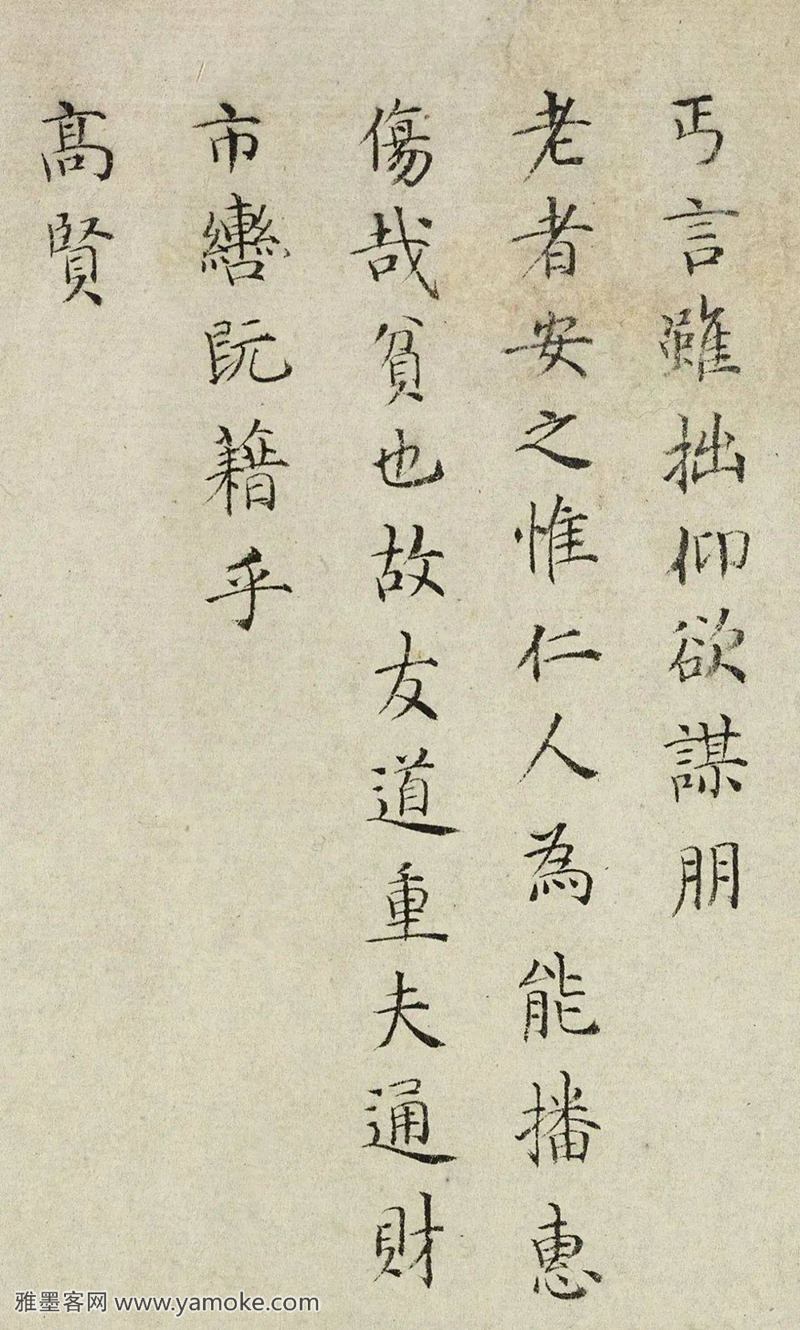 丐言雖拙仰欲謀朋
老者安之惟仁人為能播惠
傷哉貧也故友道重夫通財
市轡阮藉乎
高賢
雅墨客网 www.yamoke.com